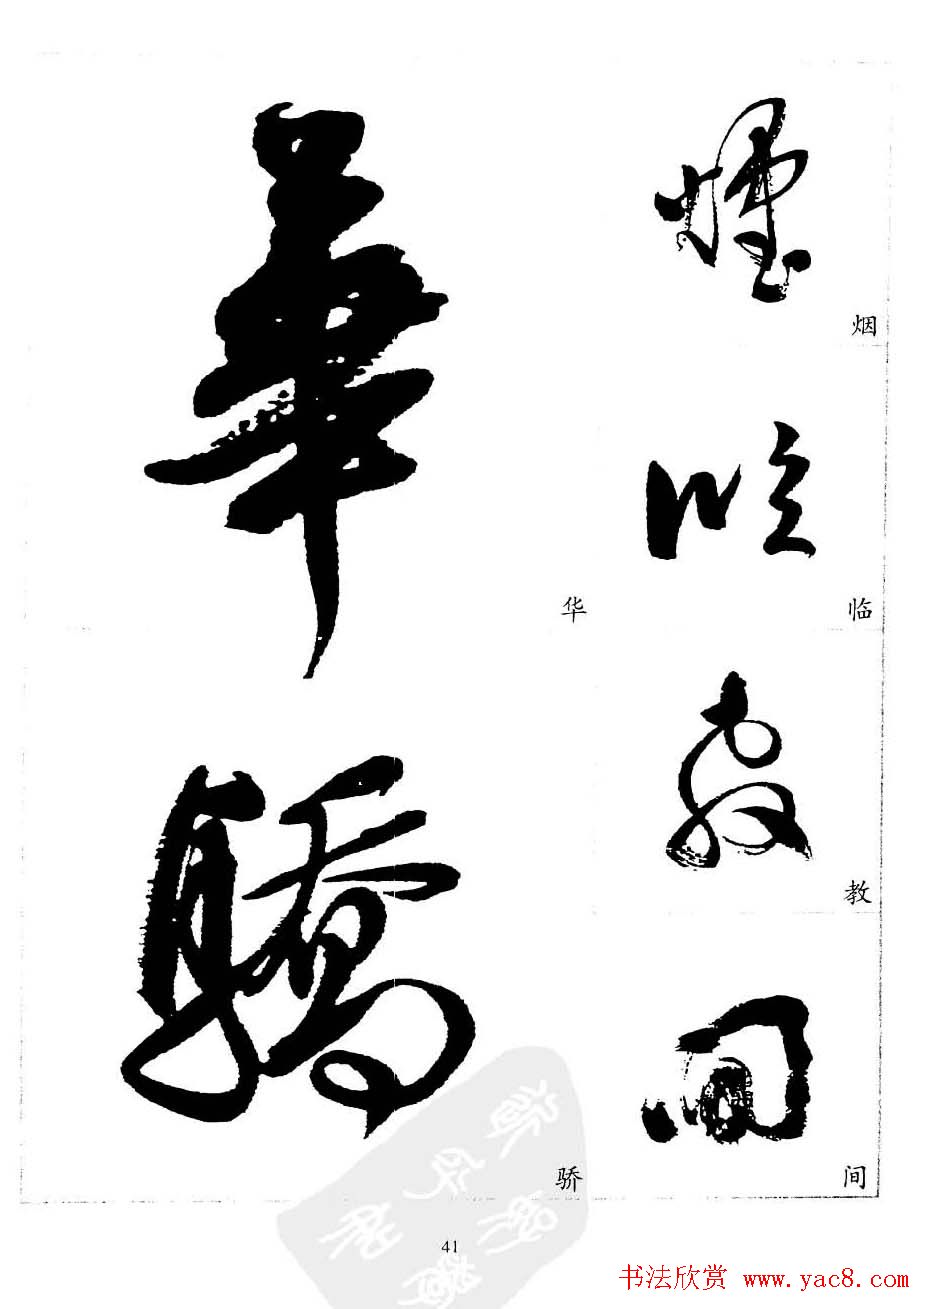 煙
烟
临
临
教
教
间
间
華
华
驕
骄
41
书法欣赏 www.yac8.com